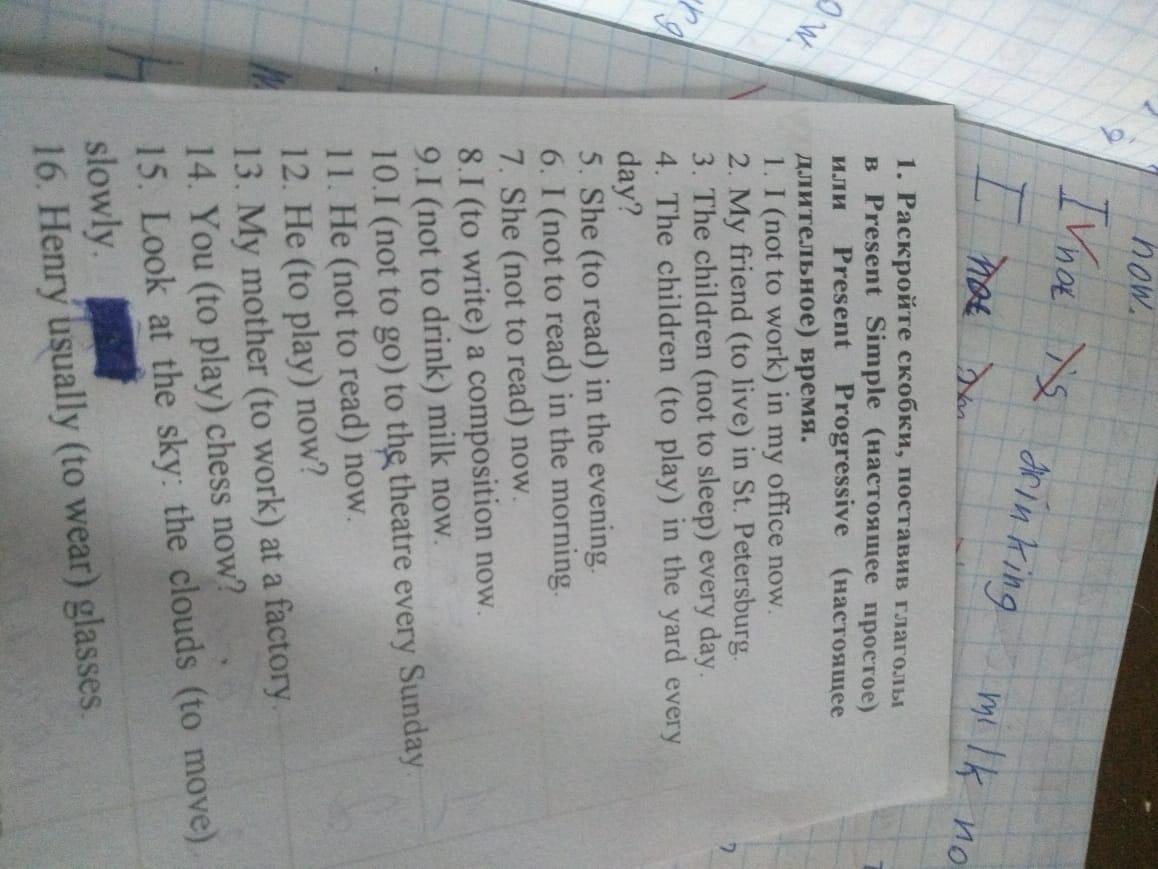 now.
I V not is drinking
I not am milk no
1. Раскройте скобки, поставив глаголы
в Present Simple (настоящее простое)
или Present Progressive (настоящее
длительное) время.
1. I (not to work) in my office now.
2. My friend (to live) in St. Petersburg.
3. The children (not to sleep) every day.
4. The children (to play) in the yard every
day?
5. She (to read) in the evening.
6. I (not to read) in the morning.
7. She (not to read) now.
8.I (to write) a composition now.
9.I (not to drink) milk now.
10.I (not to go) to the theatre every Sunday.
11. He (not to read) now.
12. He (to play) now?
13. My mother (to work) at a factory.
14. You (to play) chess now?
15. Look at the sky: the clouds (to move)
slowly.
16. Henry usually (to wear) glasses.